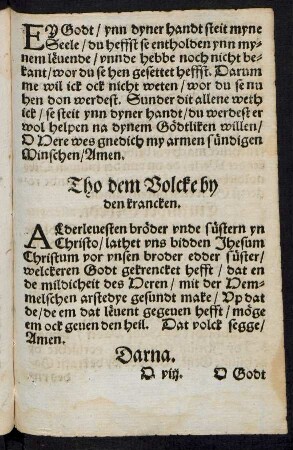 EY Godt / ynn dyner handt steit myne
Seele / du heffst se entholden ynn my-
nem lëuende / ynnde hebbe noch nicht be-
kant / wor du se hen gesettet heffst. Darum
me wil ick ock nicht weten / wor du se nu
hen don werdest. Sunder dit allene weth
ick / se steit ynn dyner handt / du werdest er
wol helpen na dynem Gödtliken willen /
O Here wes gnedich my armen sündigen
Minschen / Amen.
Tho dem Volcke by
den krancken.
ALderleuesten bröder vnde süstern yn
Christo / lathet vns bidden Jhesum
Christum vor ynsen broder edder süster /
welckeren Godt gekrencket hefft / dat en
de mildicheit des Heren / mit der Hem-
melschen arstedye gesundt make / Vp dat
de / de em dat lëuent gegeuen hefft / möge
em ock geuen den heil. Dat volck segge /
Amen.
Darna.
D viij. O Godt